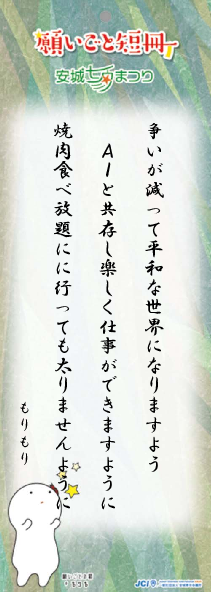 願いごと短冊
安城七夕まつり
争いが減って平和な世界になりますよう
AIと共存し楽しく仕事ができますように
焼肉食べ放題にに行っても太りませんように
もりもり
JCI